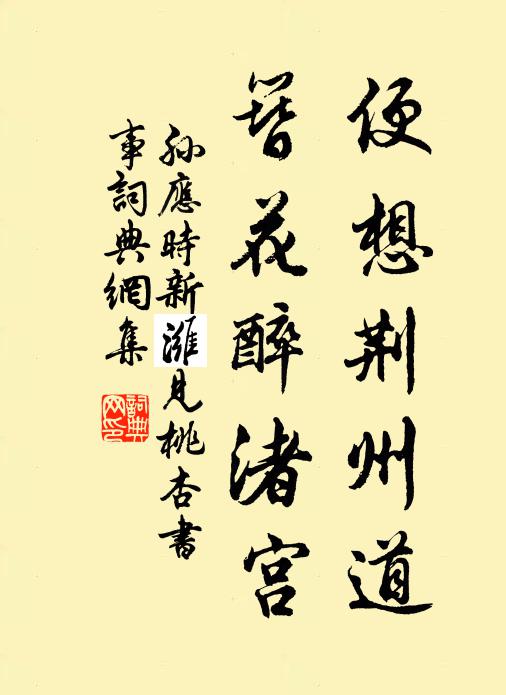 便想荆州道
簪花醉渚宫
孙應時新灘見桃杏書
事詞典網集
詞典网印